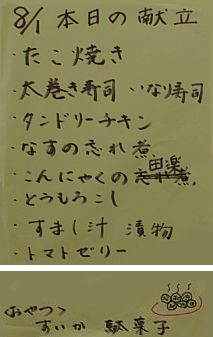 8/1 本日の献立
・たこ焼き
・太巻き寿司 いなり寿司
・タンドリーチキン
・なすの忘れ煮
・こんにゃくの田楽
・とうもろこし
・すまし汁 漬物
・トマトゼリー
<おやつ>
すいか 駄菓子